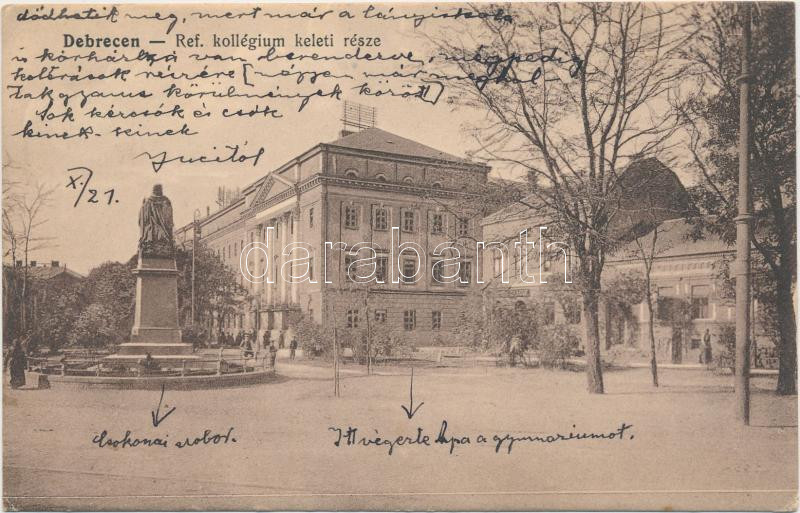 dődhetik meg, mert már a lányiskola
Debrecen — Ref. kollégium keleti része
is kórházzá van berendezve, mégpedig
kolerások részére (nagyon már meghal
tak gyanus körülmények között)
Sok kézcsók és csók
kinek-kinek
Jucitól
X./21.
darabanth
Csokonai szobor.
Itt végezte Apa a gymnasiumot.